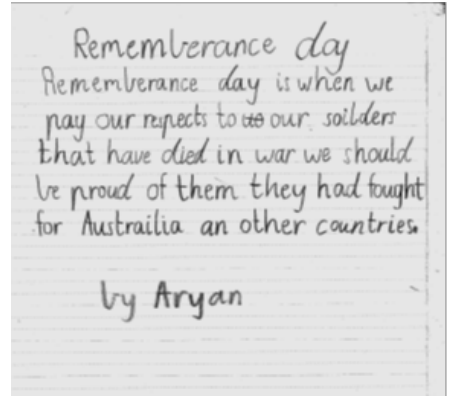 Rememberance day
Rememberance day is when we
pay our respects to our soilders
that have died in war we should
be proud of them they had fought
for Austrailia an other countries.
by Aryan